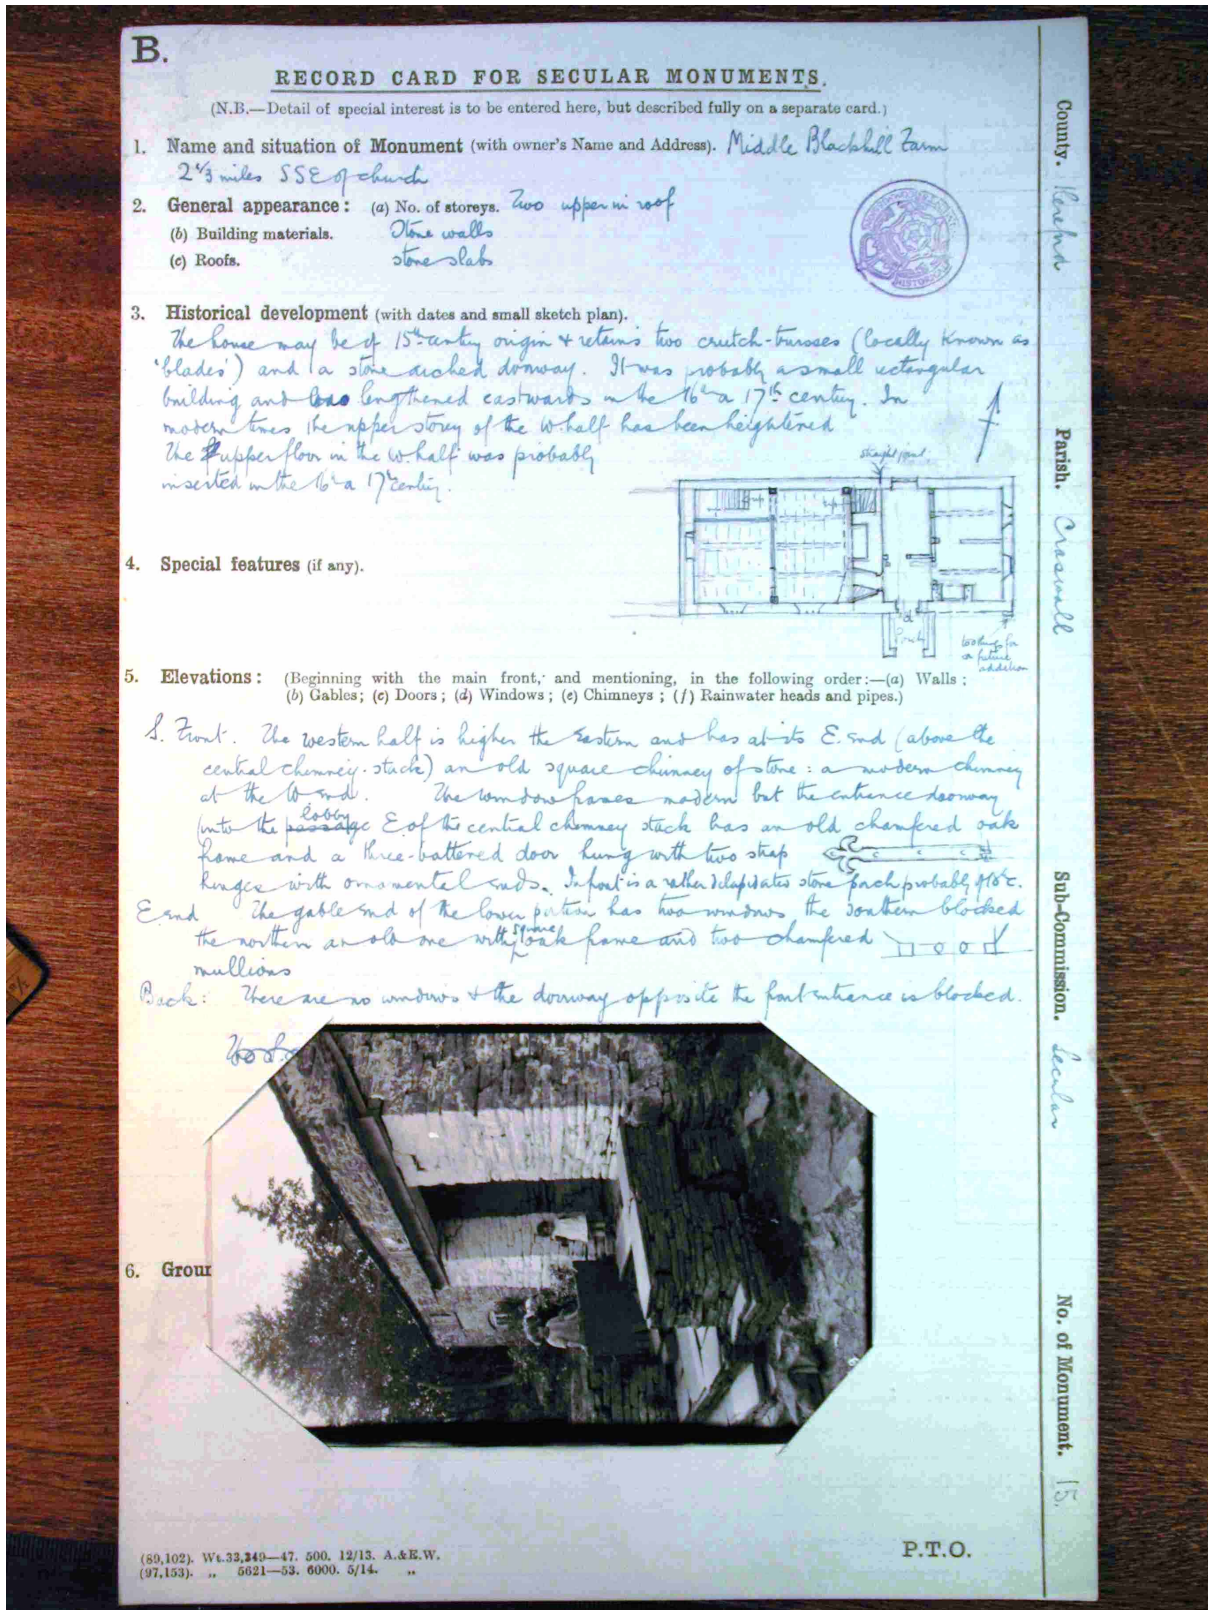 B.
RECORD CARD FOR SECULAR MONUMENTS.
(N.B.—Detail of special interest is to be entered here, but described fully on a separate card.)
1. Name and situation of Monument (with owner's Name and Address). Middle Blackhill Farm
2 1/3 miles SSE of church
2. General appearance: (a) No. of storeys. Two upper in roof
(b) Building materials. Stone walls
(c) Roofs. stone slabs
3. Historical development (with dates and small sketch plan).
The house may be of 15th century origin & retains two crutch-trusses (locally known as
'blades') and a stone arched doorway. It was probably a small rectangular
building and was lengthened eastwards in the 16th or 17th century. In
modern times the upper storey of the W. half has been heightened
The upper floor in the W. half was probably
inserted in the 16th or 17th century.
straight joint
up
up
Porch
toothings for
a future
addition
4. Special features (if any).
5. Elevations: (Beginning with the main front, and mentioning, in the following order:—(a) Walls;
(b) Gables; (c) Doors; (d) Windows; (e) Chimneys; (f) Rainwater heads and pipes.)
S. Front. The western half is higher the Eastern and has at its E. end (above the
central chimney-stack) an old square chimney of stone: a modern chimney
at the W end. The window frames modern but the entrance doorway
into the passage lobby E. of the central chimney stack has an old chamfered oak
frame and a three-battened door hung with two strap
hinges with ornamental ends. In front is a rather delapidated stone porch probably of 18th c.
E. end The gable end of the lower portion has two windows the southern blocked
the northern an old one with square oak frame and two chamfered
mullions
Back: There are no windows & the doorway opposite the front entrance is blocked.
6. Groun
(89,102). Wt.33,349—47. 500. 12/13. A.&E.W.
(97,153). „ 5621—53. 6000. 5/14. „
P.T.O.
County. Hereford
Parish. Craswall
Sub-Commission. Secular
No. of Monument. 15.